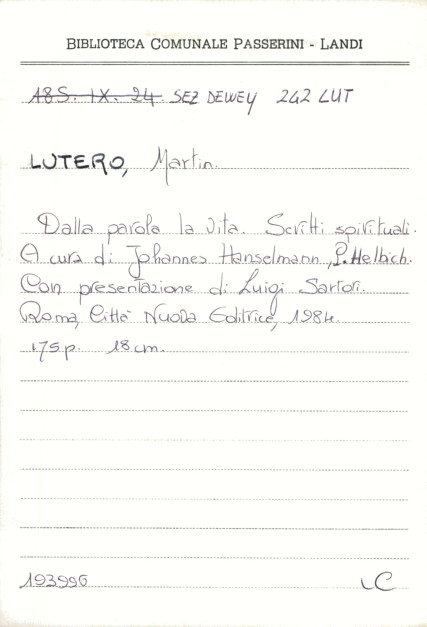 BIBLIOTECA COMUNALE PASSERINI - LANDI
18S. IX. 24. SEZ DEWEY 242 LUT
LUTERO, Martin.
Dalla parola la vita. Scritti spirituali.
A cura di Johannes Hanselmann, P. Helbich.
Con presentazione di Luigi Sartori.
Roma, Città Nuova Editrice, 1984.
175 p. 18 cm.
193996
C